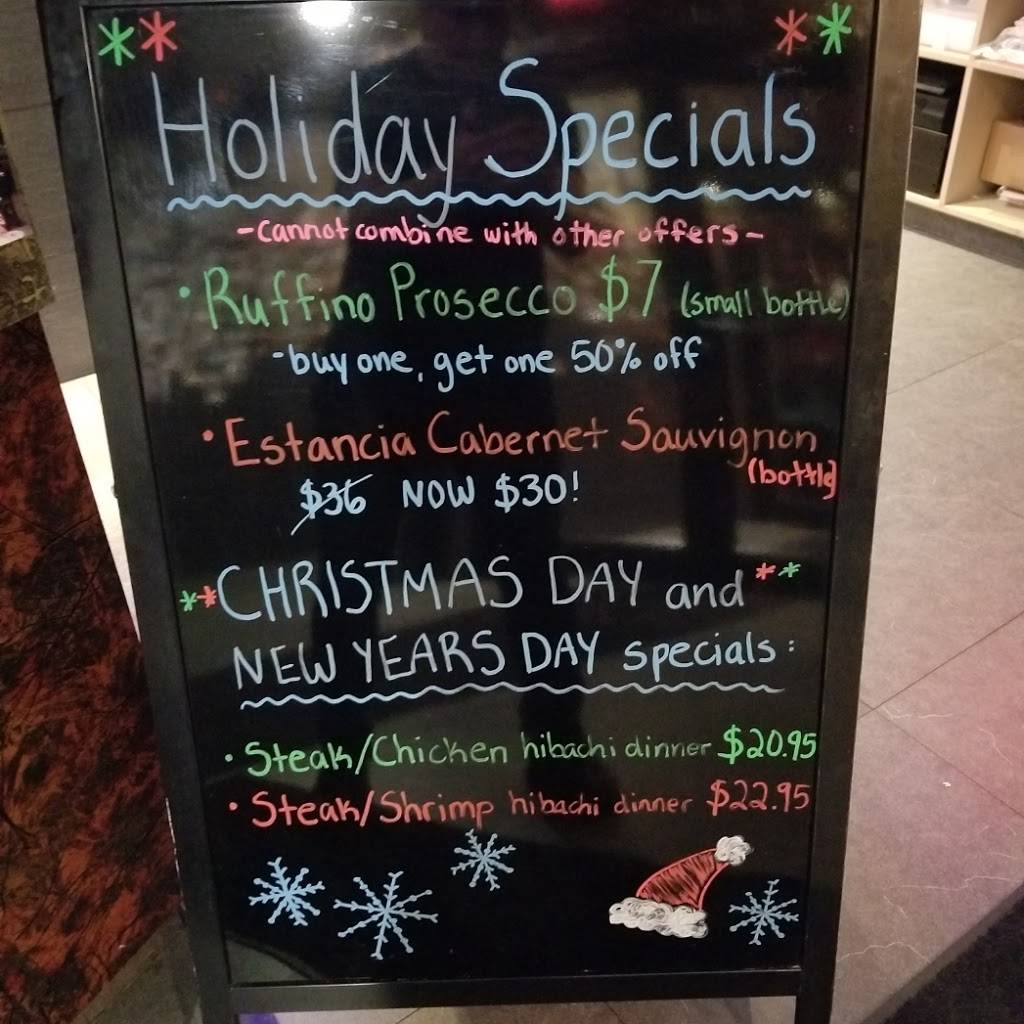 Holiday Specials
-Cannot combine with other offers-
• Ruffino Prosecco $7 (small bottle)
-buy one, get one 50% off
• Estancia Cabernet Sauvignon
(bottle)
$36 NOW $30!
**CHRISTMAS DAY and**
NEW YEARS DAY specials:
• Steak/Chicken hibachi dinner $20.95
• Steak/Shrimp hibachi dinner $22.95